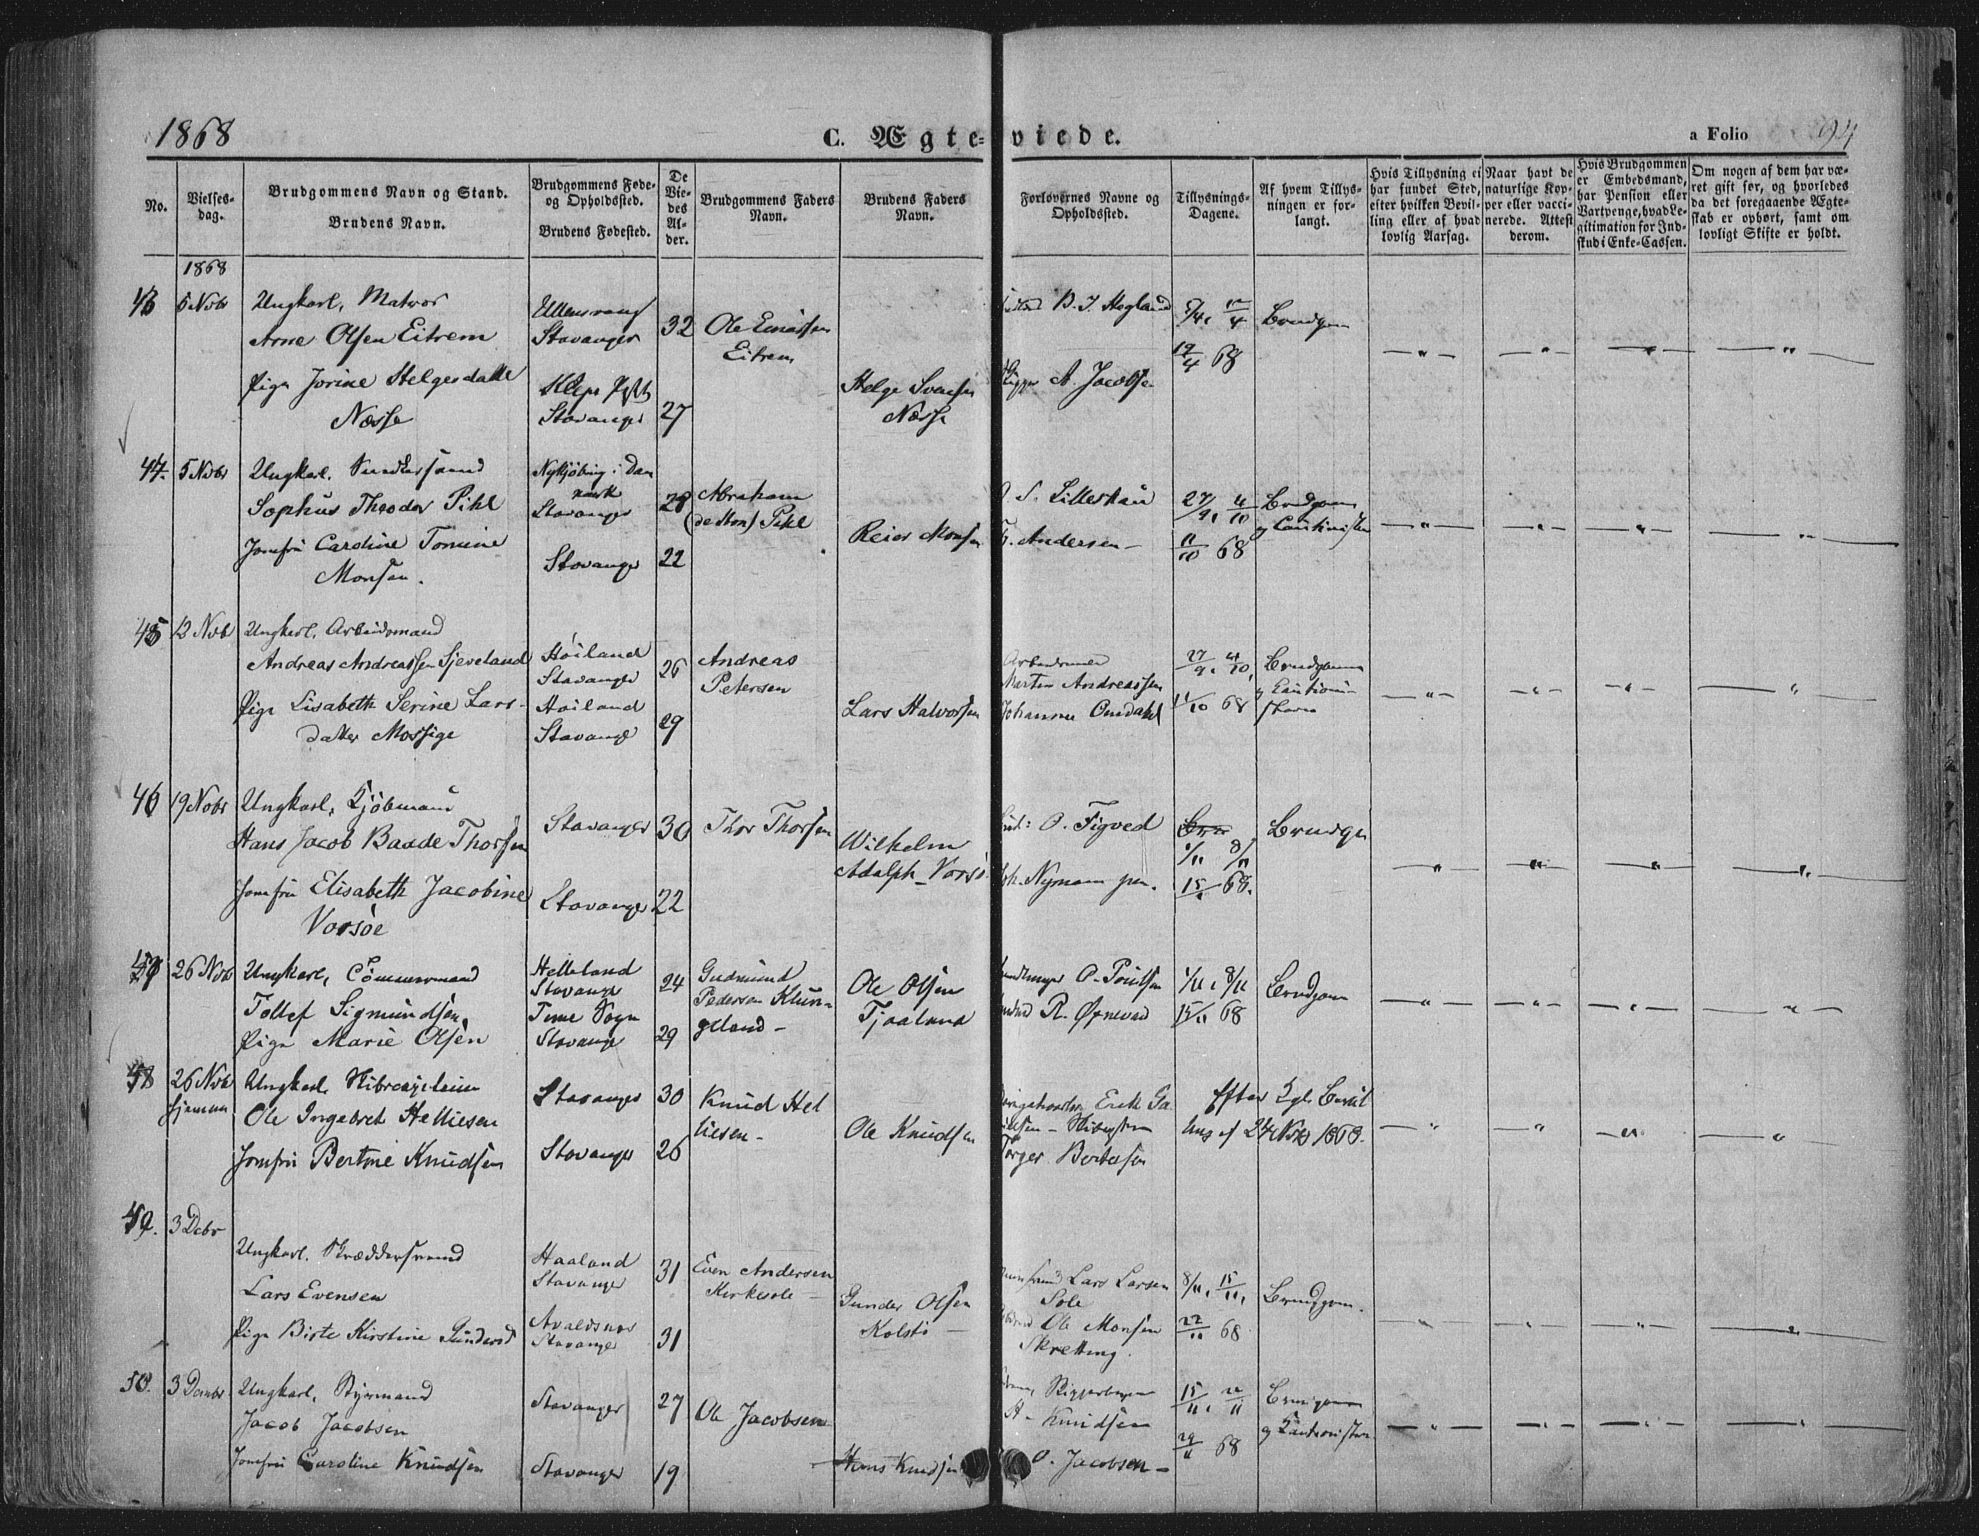 1868
C. Ægteviede.
a Folio
94
No.
Vielses-
dag.
Brudgommens Navn og Stand.
Brudens Navn.
Brudgommens Føde-
og Opholdssted.
Brudens Fødested.
De
Vie-
des
Al-
der.
Brudgommens Faders
Navn.
Brudens Faders
Navn.
Forlovernes Navne og
Opholdssted.
Tillysnings-
Dagene.
Af hvem Tillys-
ningen er for-
langt.
Hvis Tillysning ei
har fundet Sted,
efter hvilken Bevil-
ling eller af hvad
lovlig Aarsag.
Naar havt de
naturlige Kop-
per eller vacci-
nerede. Attest
derom.
Hvis Brudgommen
er Embedsmand,
har Pension eller
Vartpenge, hvad Le-
gitimation for Ind-
skud i Enke-Cassen.
Om nogen af dem har væ-
ret gift før, og hvorledes
da det foregaaende Ægte-
skab er ophørt, samt om
lovligt Skifte er holdt.
1868
43 5 Nvbr Ungkarl, Matros
Arne Olsen Eitrem
Ullensvang
Stavanger
32
Ole
Eitrem
B. J. Hogland
5/4, 12/4
19/4 68
Brudgom
Pige Jorine Helgesdatter
Næsse
Klep
Stavanger
27
Helge Svensen
Næsse
A. Jacobsen
44. 5 Nvbr Ungkarl.
Sophus Theodor Pihl
Nykjøbing i Dan
mark
Stavanger
28
Abraham
Pihl
S. Lilleskau
27/9, 4/10
11/10 68
Brudgom
og Cautionister
Jomfru Caroline Tomine
Monsen.
Stavanger
22
Reier Monsen
Andersen
45 12 Nvb Ungkarl. Arbeidsmand
Andreas Andreassen Sjeveland
Høiland
Stavanger
26
Andreas
Petersen
Martin Andreassen
27/9, 4/10,
11/10 68
Brudgom
og Cautioni-
sterne
Pige Lisabeth Serine Lars-
datter Mossige
Høiland
Stavanger
29
Lars Halvorsen
Johannes Omdahl
46 19 Nvbr Ungkarl, Kjøbmand
Hans Jacob Baade Thorsen
Stavanger
30
Thor Thorsen
O. Figved
1/11 8/11
15/11 68.
Brudgom
Jomfru Elisabeth Jacobine
Vorsøe
Stavanger
22
Wilhelm
Adolph Vorsø
Joh. Nyman jun.
47 26 Nvbr Ungkarl, Tømmermand
Tollef Sigmundsen
Pige Marie Olsen
Helleland
Stavanger
Time Sogn
Stavanger
24
29
Gudmund
Pedersen Klun-
geland
Ole Olsen
Tjaaland
O. Poulsen
R. Ørnevad
1/11, 8/11
15/11 68
Brudgom
48 26 Nvbr
hjemme
Ungkarl,
Ole Ingebret Helliesen
Jomfru Bertine Knudsen
Stavanger
Stavanger
30
26
Knud Hel
liesen
Ole Knudsen
Erik Ga
Torger Bertesen
Efter Kgl. Bevil
ling af 24 Nvbr 1868.
49. 3 Dcbr
Ungkarl. Skræddersvend
Lars Evensen
Pige Birte Kirstine Gundersd
Haaland
Stavanger
Avaldsnes
Stavanger
31
31
Even Andersen
Kirkesole
Gunder Olsen
Kolstø
Lars Larsen
Sole
Ole Monsen
Skretting.
8/11, 15/11,
22/11 68
Brudgom.
50. 3 Dcmbr Ungkarl, Styrmand
Jacob Jacobsen
Jomfru Caroline Knudsen
Stavanger
Stavanger
27
19
Ole Jacobsen
Hans Knudsen
A. Knudsen
O. Jacobsen
15/11, 22/11
29/11 68
Brudgom
og Cautionister